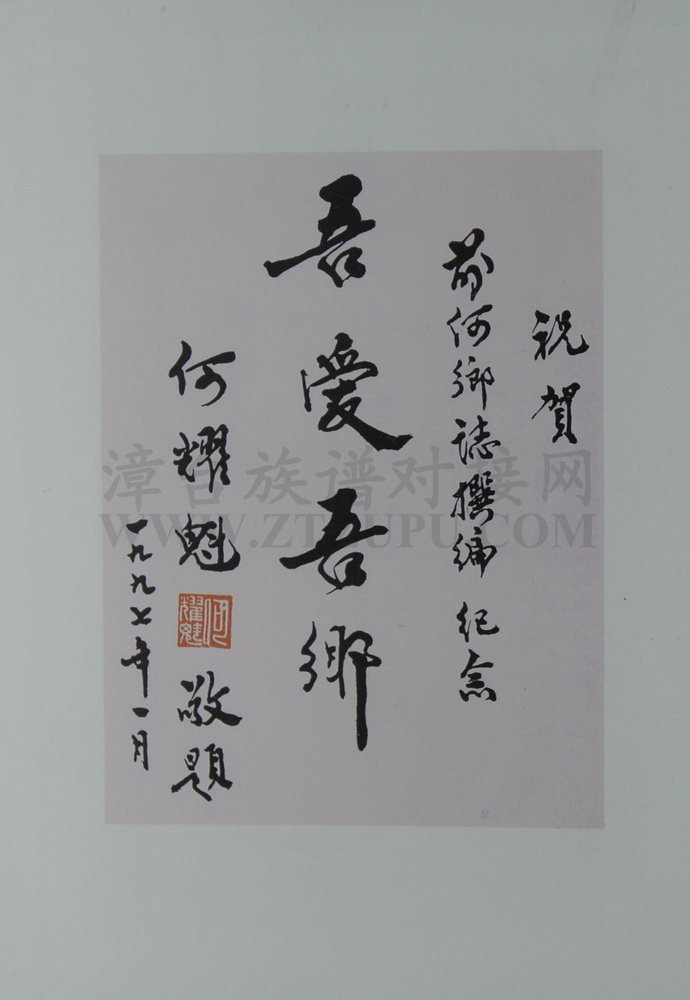 祝賀
前何鄉誌撰編紀念
吾愛吾鄉
何耀魁敬題
何耀魁
一九九七年一月
漳台族谱对接网
WWW.ZTZUPU.COM